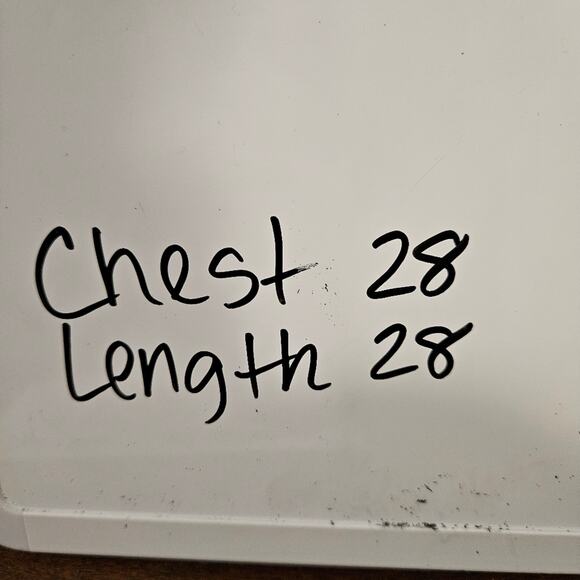 Chest 28
Length 28